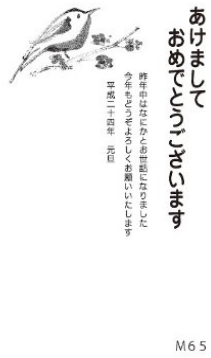 あけまして
おめでとうございます
昨年中はなにかとお世話になりました
今年もどうぞよろしくお願いいたします
平成二十四年　元旦
M65